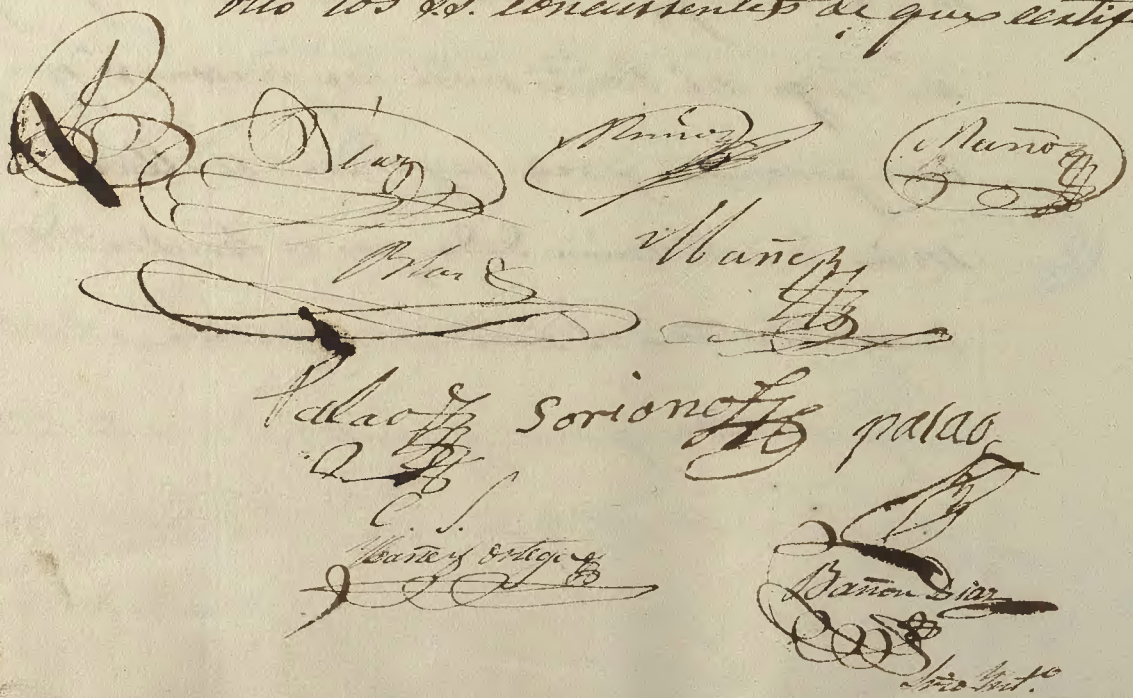 los S.S. concurrentes de que certif
Diaz Muñoz Muñoz
Blas Ybañez
Palao Soriono palao
C. S.
Ybañez Ortega
Bañon Diaz
Srio Int.º